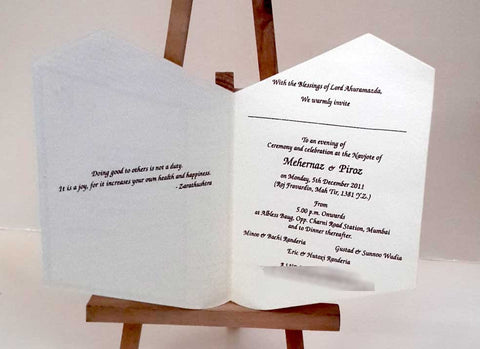 Doing good to others is not a duty.
It is a joy, for it increases your own health and happiness.
- Zarathushtra
With the Blessings of Lord Ahuramazda,
We warmly invite
To an evening of
Ceremony and celebration at the Navjote of
Mehernaz & Piroz
on Monday, 5th December 2011
(Roj Fravardin, Mah Tir, 1381 Y.Z.)
From
5.00 p.m. Onwards
at Albless Baug, Opp. Charni Road Station, Mumbai
and to Dinner thereafter.
Minoo & Bachi Randeria
Gustad & Sunnoo Wadia
Eric & Hutoxi Randeria